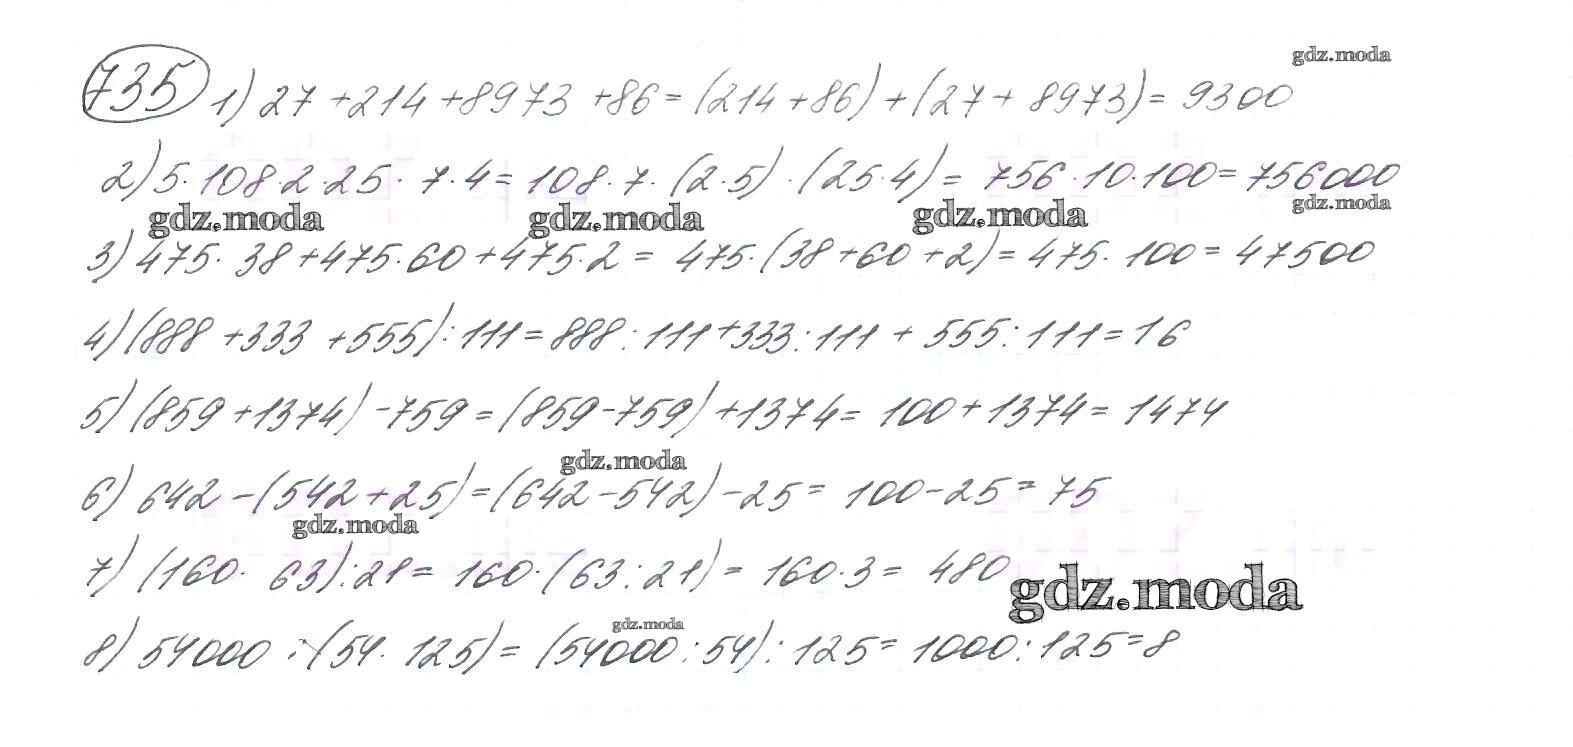 gdz.moda
735 1) 27 + 214 + 8973 + 86 = (214 + 86) + (27 + 8973) = 9300
2) 5 · 108 · 2 · 25 · 7 · 4 = 108 · 7 · (2 · 5) · (25 · 4) = 756 · 10 · 100 = 756000
gdz.moda gdz.moda gdz.moda gdz.moda
3) 475 · 38 + 475 · 60 + 475 · 2 = 475 · (38 + 60 + 2) = 475 · 100 = 47500
4) (888 + 333 + 555) : 111 = 888 : 111 + 333 : 111 + 555 : 111 = 16
5) (859 + 1374) - 759 = (859 - 759) + 1374 = 100 + 1374 = 1474
gdz.moda
6) 642 - (542 + 25) = (642 - 542) - 25 = 100 - 25 = 75
gdz.moda
7) (160 · 63) : 21 = 160 · (63 : 21) = 160 · 3 = 480
gdz.moda
gdz.moda
8) 54000 : (54 · 125) = (54000 : 54) : 125 = 1000 : 125 = 8